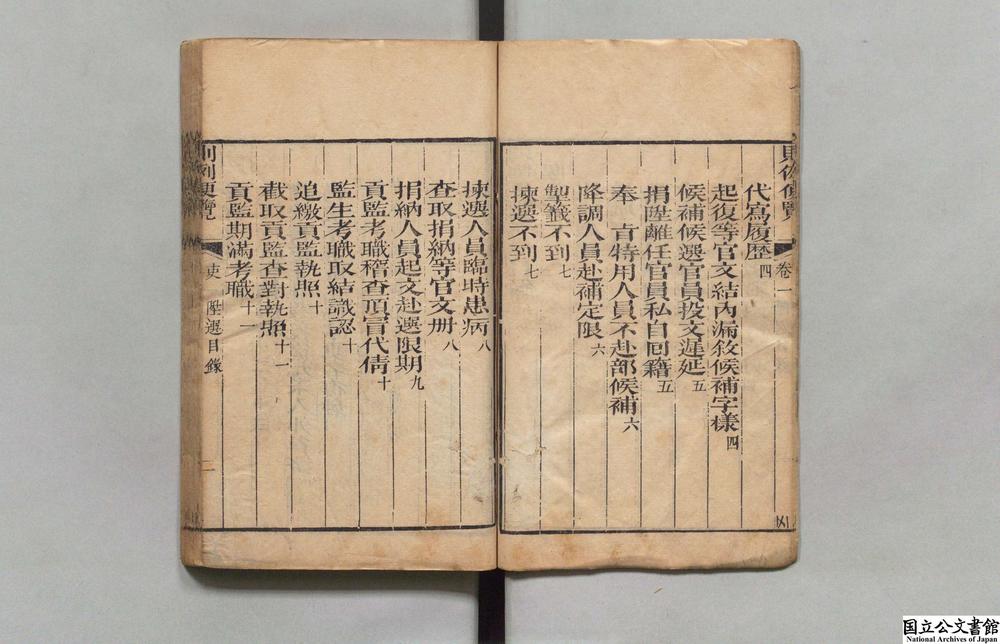 則例便覽
卷一
代寫履歷四
起復等官文結內漏敘候補字樣四
候補候選官員投文遲延五
捐陞離任官員私自回籍五
奉　旨特用人員不赴部候補六
降調人員赴補定限六
掣籤不到七
揀選不到七
揀選人員臨時患病八
查取捐納等官文册八
捐納人員起文赴選限期九
貢監考職稽查頂冒代倩十
監生考職取結識認十
追繳貢監執照十
截取貢監查對執照十一
貢監期滿考職十一
則例便覽
吏
陞選目錄
二
国立公文書館
National Archives of Japan